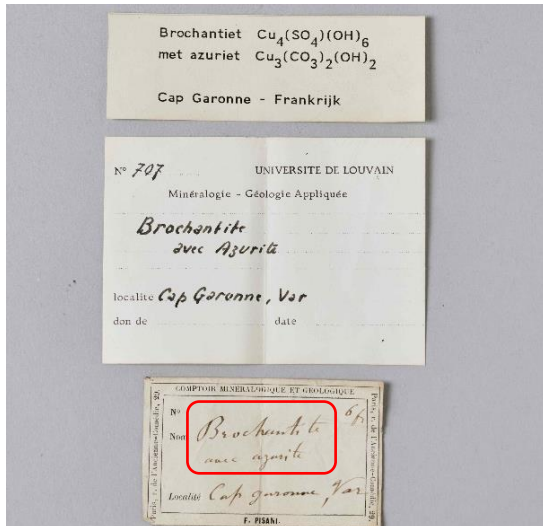 Brochantiet Cu4(SO4)(OH)6
met azuriet Cu3(CO3)2(OH)2
Cap Garonne - Frankrijk
N° 707 UNIVERSITE DE LOUVAIN
Minéralogie - Géologie Appliquée
Brochantite
avec Azurite
localité Cap Garonne, Var
don de date
COMPTOIR MINÉRALOGIQUE ET GÉOLOGIQUE
N° 6 fr
Nom Brochantite
avec azurite
Localité Cap garonne, Var
F. PISANI.
Paris, r. de l'Ancienne-Comédie, 29.
Paris, r. de l'Ancienne-Comédie, 29.